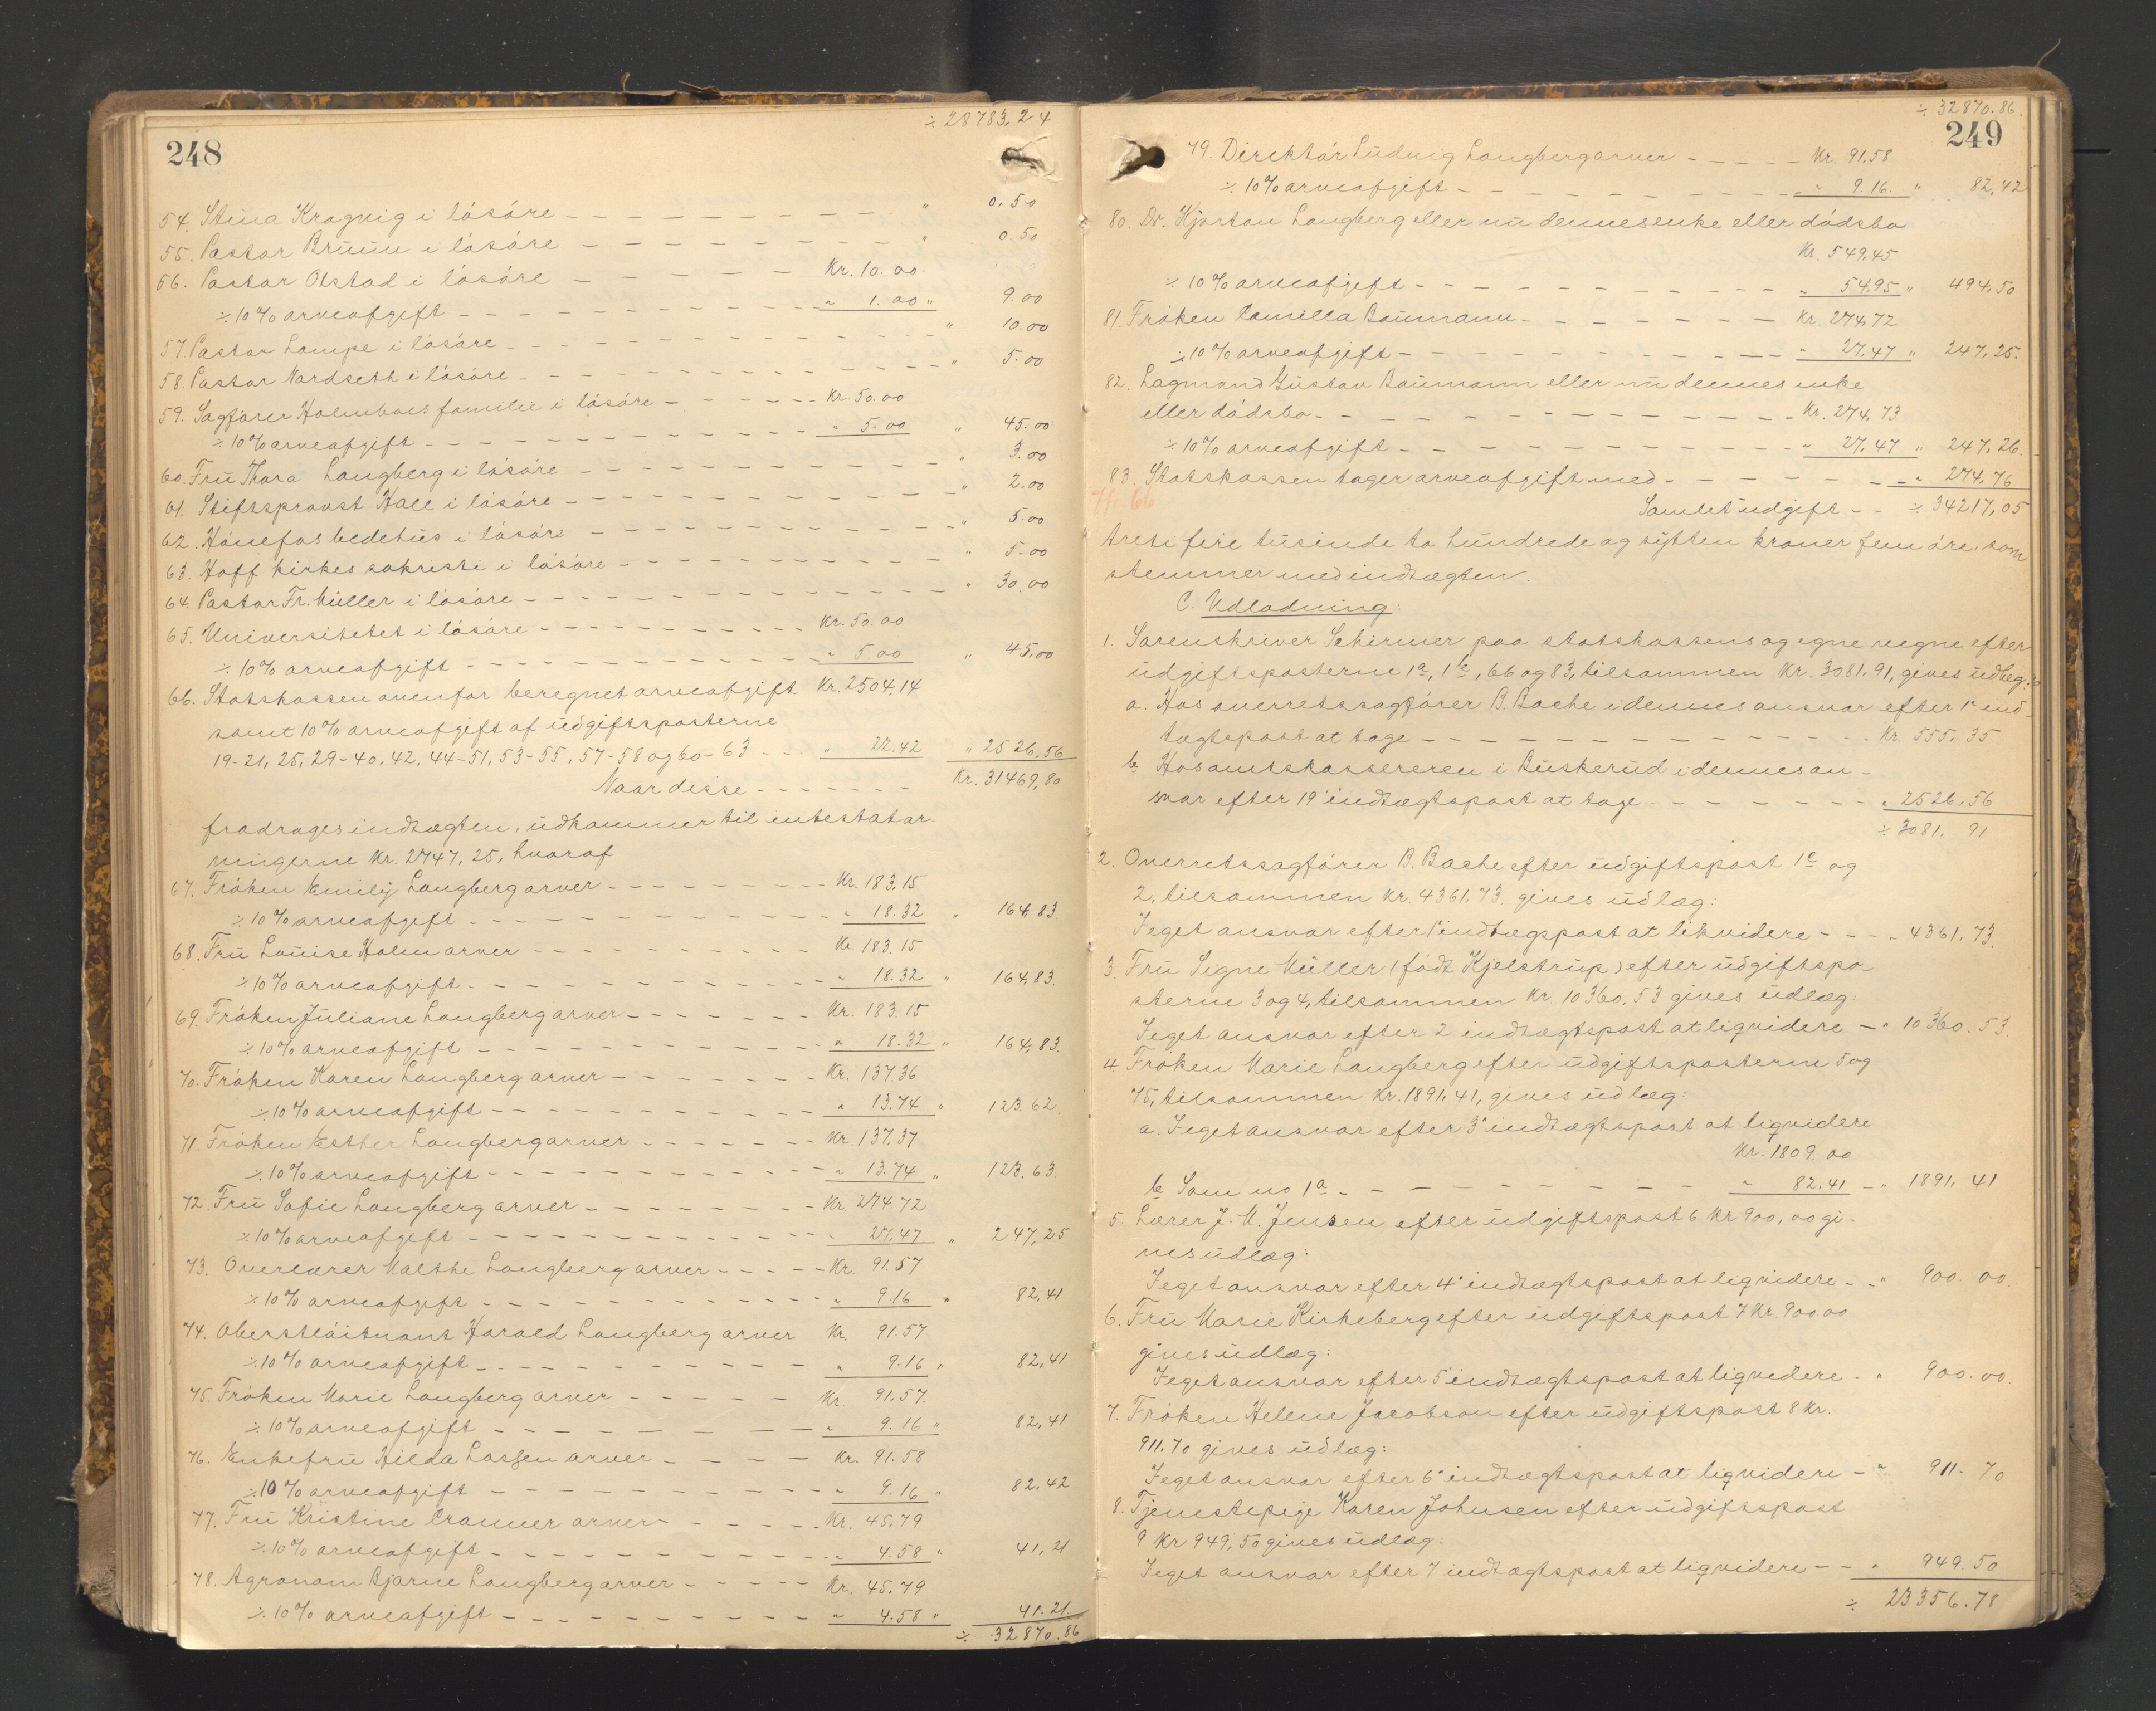 248
÷ 28783,24
54. Stina Kragvig i lösöre — " 0.50
55. Pastor Bruun i lösöre — " 0.50
56. Pastor Olstad i lösöre — Kr. 10.00
÷ 10% arveafgift — " 1.00 " 9.00
57. Pastor Lampe i lösöre — " 10.00
58. Pastor Nordseth i lösöre — " 5.00
59. Sagförer Holmboes familie i lösöre — Kr. 50.00
÷ 10% arveafgift — " 5.00 " 45.00
60. Fru Thora Langberg i lösöre — " 3.00
61. Stiftsprovst Hall i lösöre — " 2.00
62. Hönefos bedehus i lösöre — " 5.00
63. Hoff kirkes sakristi i lösöre — " 5.00
64. Pastor Fr. Müller i lösöre — " 30.00
65. Universitetet i lösöre — Kr. 50.00
÷ 10% arveafgift — " 5.00 " 45.00
66. Statskassen ovenfor beregnet arveafgift Kr. 2504.14
samt 10% arveafgift af udgiftsposterne
19-21, 25, 29-40, 42, 44-51, 53-55, 57-58 og 60-63 — " 22.42 " 2526.56
Naar disse — Kr. 31469,80
fradrages indtægten, udkommer til intestatar-
vingerne Kr. 2747,25, hvoraf
67. Fröken Emily Langberg arver — Kr. 183.15
÷ 10% arveafgift — " 18.32 " 164,83.
68. Fru Louise Holm arver — Kr. 183.15
÷ 10% arveafgift — " 18.32 " 164,83.
69. Fröken Juliane Langberg arver — Kr. 183.15
÷ 10% arveafgift — " 18.32 " 164,83.
70. Fröken Karen Langberg arver — Kr. 137.36
÷ 10% arveafgift — " 13.74 " 123.62
71. Fröken Esther Langberg arver — Kr. 137.37
÷ 10% arveafgift — " 13.74 " 123.63.
72. Fru Sofie Langberg arver — Kr 274.72
÷ 10% arveafgift — " 27.47 " 247,25
73. Overlærer Malthe Langberg arver — Kr. 91.57
÷ 10% arveafgift — " 9.16 " 82,41
74. Oberstlöitnant Harald Langberg arver Kr. 91.57
÷ 10% arveafgift — " 9.16 " 82,41
75. Fröken Marie Langberg arver — Kr. 91.57.
÷ 10% arveafgift — " 9.16 " 82,41
76. Enkefru Hilda Lassen arver — Kr. 91.58
÷ 10% arveafgift — " 9.16 " 82,42
77. Fru Kristine Cramer arver — Kr. 45.79
÷ 10% arveafgift — " 4.58 " 41,21
78. Agronom Bjarne Langberg arver — Kr. 45.79
÷ 10% arveafgift — " 4.58 " 41.21
÷ 32870.86
÷ 32870.86.
249
79. Direktör Ludvig Langberg arver — Kr. 91.58
÷ 10% arveafgift — " 9.16. " 82,42
80. Dr. Kjartan Langberg eller nu dennes enke eller dödsbo
Kr. 549,45
÷ 10% arveafgift — " 54.95 " 494,50
81. Fröken Camilla Baumann — Kr. 274,72
÷ 10% arveafgift — " 27.47 " 247,25.
82. Lagmand Gustav Baumann eller nu dennes enke
eller dödsbo — Kr. 274,73
÷ 10% arveafgift — " 27,47 " 247,26.
83. Statskassen tager arveafgift med — " 274,76
Samlet udgift — ÷ 34217,05
treti fire tusinde to hundrede og sytten kroner fem öre, som
stemmer med indtægten.
C. Udlodning:
1. Sorenskriver Schirmer paa statskassens og egne vegne efter
udgiftsposterne 1a, 1b, 66 og 83, tilsammen Kr. 3081.91, gives udlæg:
a. Hos overretssagförer B. Bache i dennes ansvar efter 1ste ind-
tægtspost at tage — Kr. 555,35
b. Hos amtskassereren i Buskerud i dennes an-
svar efter 19' indtægtspost at tage — " 2526,56
÷ 3081. 91
2. Overretssagförer B. Bache efter udgiftspost 1c og
2, tilsammen Kr. 4361.73. gives udlæg:
I eget ansvar efter 1' indtægspost at likvidere — " 4361.73.
3. Fru Signe Müller (födt Kjelstrup) efter udgiftspo-
sterne 3 og 4, tilsammen Kr. 10360.53 gives udlæg:
I eget ansvar efter 2 indtægtspost at liqvidere — " 10360.53.
4. Fröken Marie Langberg efter udgiftsposterne 5 og
75, tilsammen Kr. 1891,41, gives udlæg:
a. I eget ansvar efter 3' indtægtspost at liqvidere
Kr. 1809.00
b. Som no 1a — " 82,41 — " 1891,41
5. Lærer J. M. Jensen efter udgiftspost 6 Kr 900,00 gi-
ves udlæg:
I eget ansvar efter 4' indtægtspost at liqvidere — " 900.00.
6. Fru Marie Kirkeberg efter udgiftspost 7 Kr. 900.00
gives udlæg:
I eget ansvar efter 5' indtægtspost at liqvidere — " 900.00.
7. Fröken Helene Jacobson efter udgiftspost 8 Kr.
911.70 gives udlæg:
I eget ansvar efter 6' indtægtspost at liqvidere — " 911.70
8. Tjenestepige Karen Johnsen efter udgiftspost
9 Kr 949,50 gives udlæg:
I eget ansvar efter 7 indtægtspost at liqvidere — " 949.50
÷ 23356.78